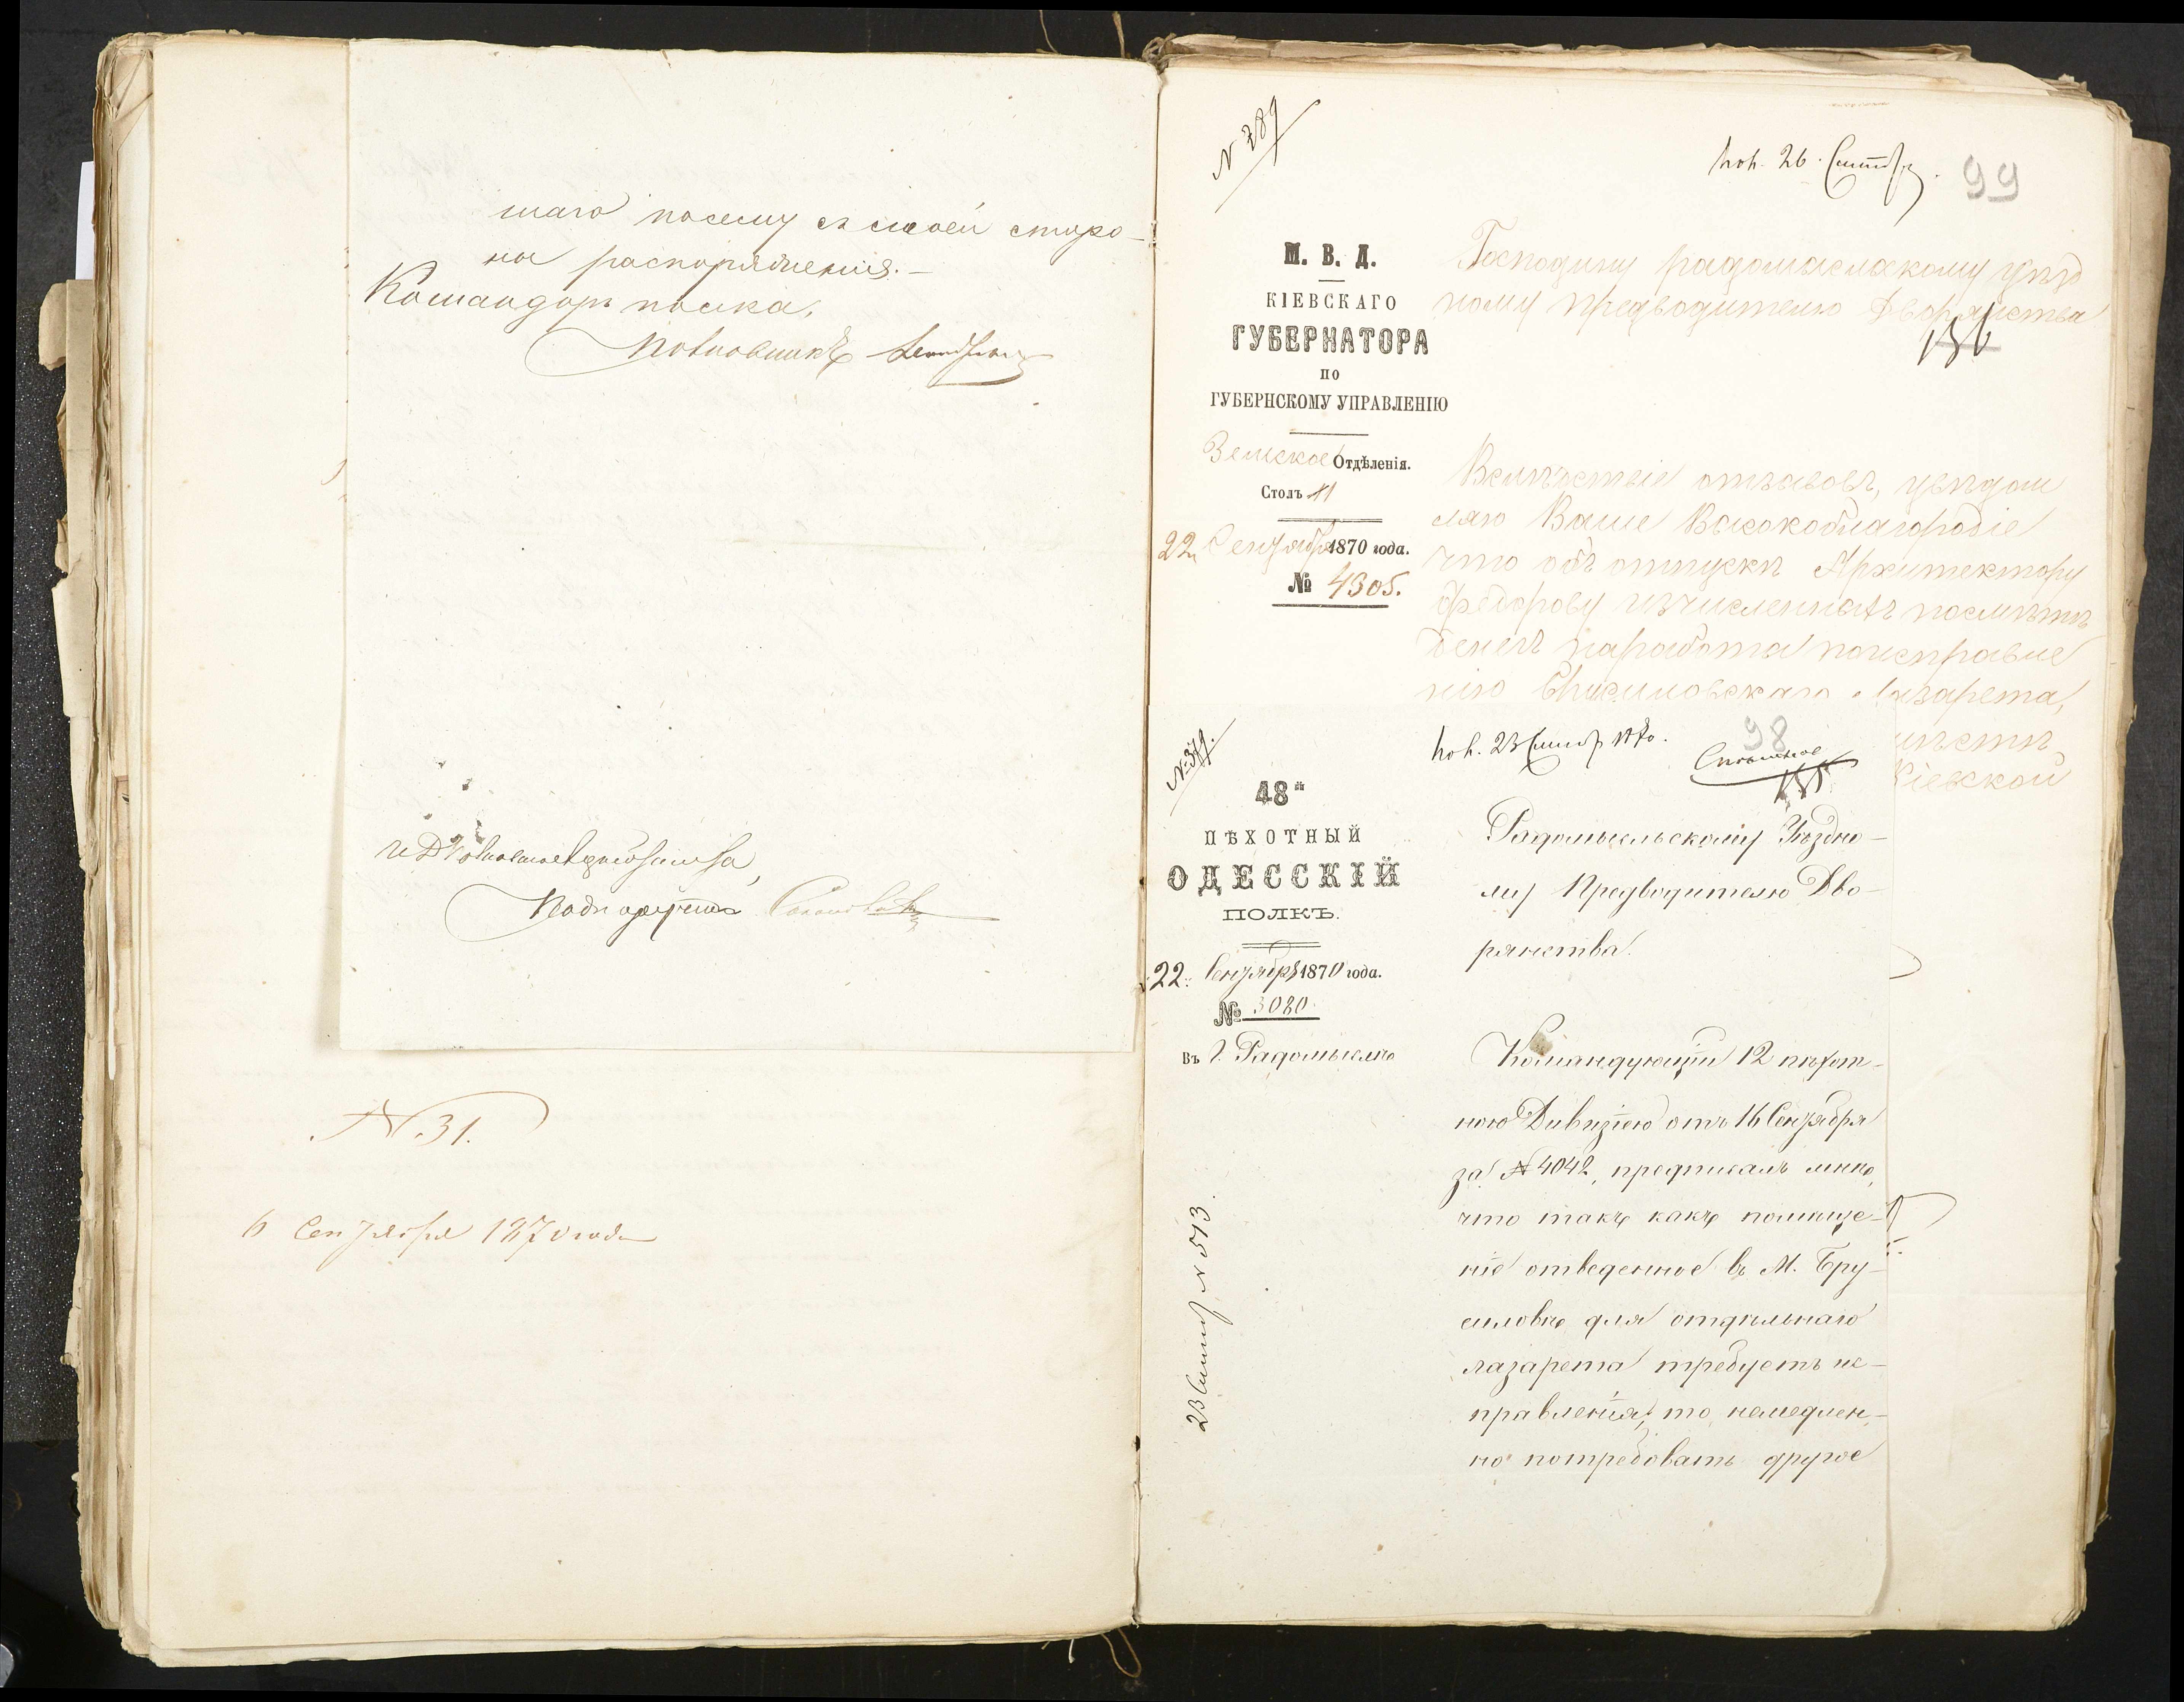 шаго посему съ своей сторо-
ны распоряженія.-
Командиръ полка,
Полковникъ
Подпоручикъ
N. 31.
6 Сентября 1870 года
N 389
пол. 26 Сентября.
99
М. В. Д.
КІЕВСКАГО
ГУБЕРНАТОРА
ПО
ГУБЕРНСКОМУ УПРАВЛЕНІЮ
Земское Отдѣленія.
Столъ 11
22 Сентября 1870 года.
№ 4305.
Господину радомысльскому уѣзд
ному предводителю Дворянства
136
Вслѣдствіе отзывовъ, увѣдом
ляю Ваше Высокоблагородіе
что объ отпускѣ Архитектору
Федорову изчисленныхъ посмѣтѣ
денегъ наработы поисправле
нію Брусиловскаго Лазарета,
Кіевской
N 379.
пол. 23 Сентяб 1870.
98
Спѣшное
135
48й
ПѢХОТНЫЙ
ОДЕССКІЙ
ПОЛКЪ.
22 Сентября 1870 года.
№ 3080
Въ г. Радомыслѣ
23 Сентяб N 513.
Радомысльскому Уѣздно-
му Предводителю Дво-
рянства.
Командующій 12 пѣхот-
ною Дивизіею отъ 16 Сентября
за N 4042, предписалъ мнѣ,
что такъ какъ помѣще-
ніе отведенное въ М. Бру-
силовѣ для отдѣльнаго
лазарета требуетъ ис-
правленія, то немедлен-
но потребовать другое